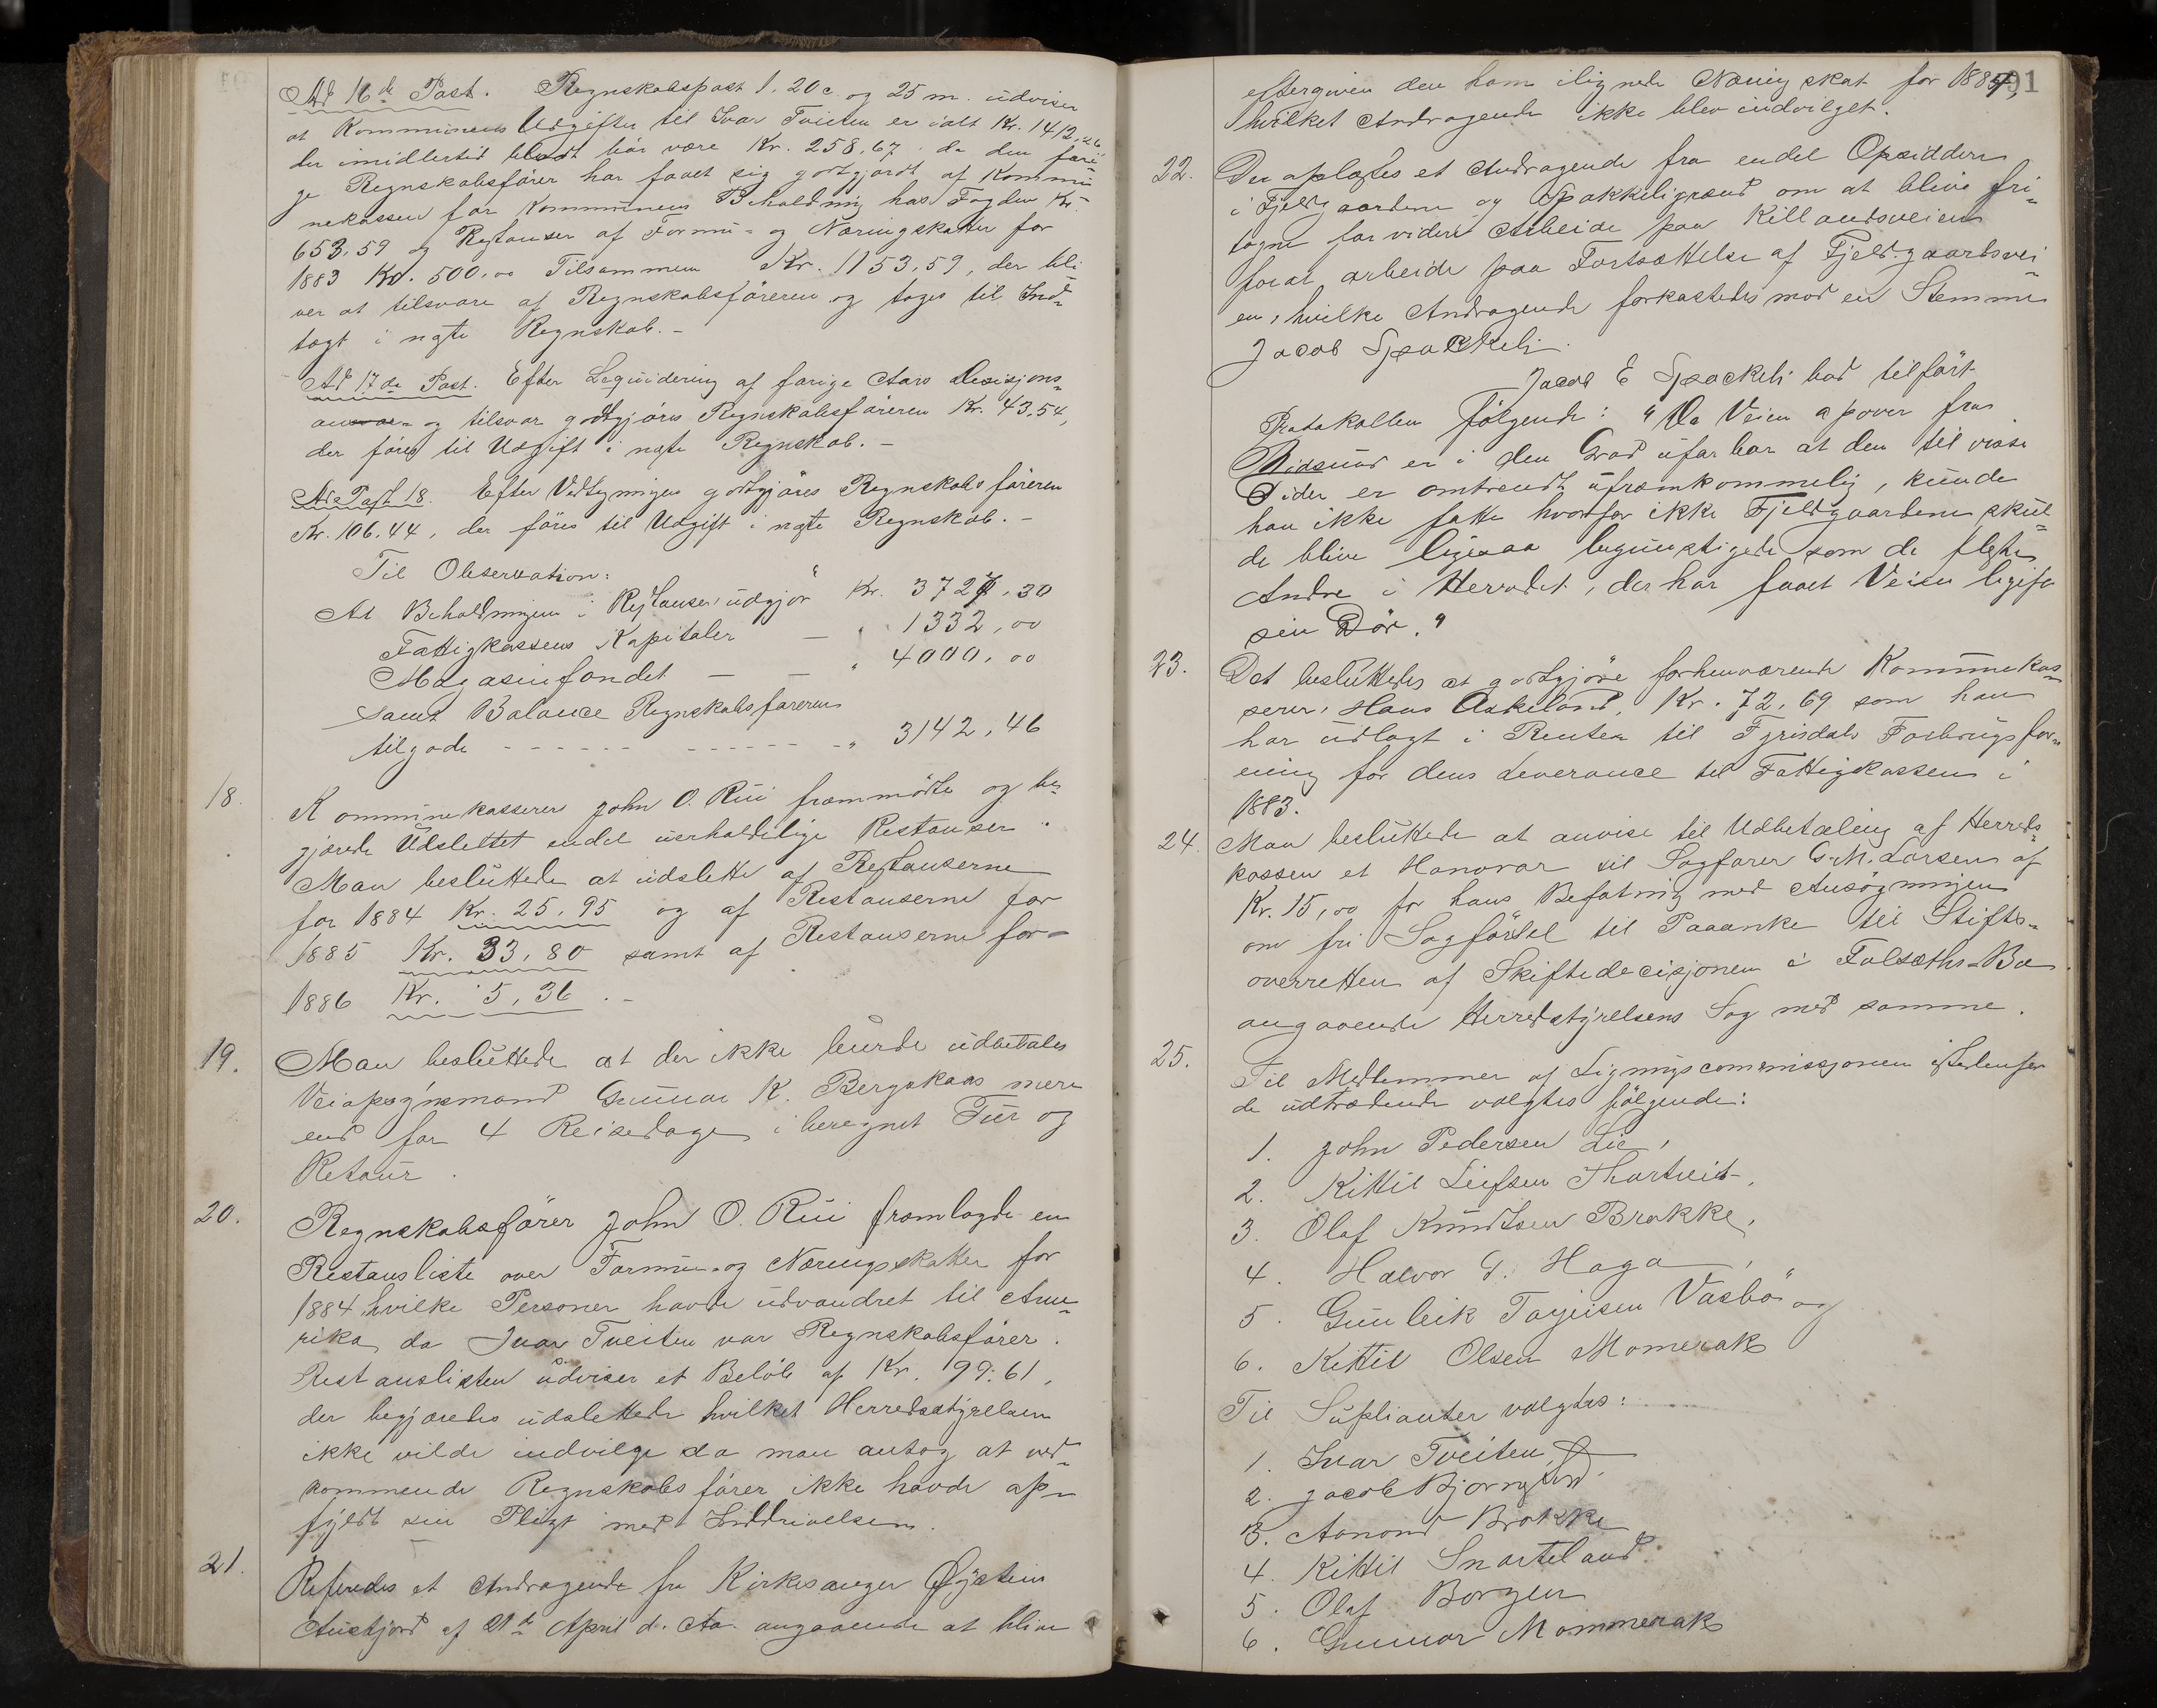 Ad 16de Post. Regnskabspost 1, 20 c og 25 m. udviser
at Kommunens Udgifter til Ivar Tveiten er ialt Kr. 1412,26
der imidlertid blodt bör være Kr. 258,67. da den fori-
ge Regnskabsförer har faaet sig godtgjordt af Kommu-
nekassen for Kommunens Beholdning hos Fogden Kr.
653,59 og Restanser af Formu- og Næringskatter for
1883 Kr. 500,00 Tilsammen Kr. 1153,59, der bli-
ver at tilsvare af Regnskabsföreren og tages til Ind-
tægt i næste Regnskab. -
Ad 17de Post. Efter Liquidering af forige Aars Desisjons-
og tilsvar godtgjöres Regnskabsföreren Kr. 43,54,
der föres til Udgift i næste Regnskab. -
Ad Post 18. Efter Vedtegningen godtgjöres Regnskabsföreren
Kr. 106,44, der föres til Udgift i næste Regnskab. -
Til Observation:
At Beholdningen i Restanser udgjör Kr. 3727,30
Fattigkassens Kapitaler — " 1332,00
Magasinfondet — — " 4000,00
samt Balance Regnskabsföreren
tilgode - - - - - - - - - - - - " 3142,46
18. Kommunekasserer John O. Rui frammödte og be-
gjærede Udslettet endel uerholdelige Restanser.
Man besluttede at udslette af Restanserne
for 1884 Kr. 25,95 og af Restanserne for
1885 Kr. 33,80 samt af Restanserne for
1886 Kr. 5,36. -
19. Man besluttede at der ikke burde udbetales
Veiopsynsmand Gunnar K. Bergskaas mere
end for 4 Reisedage iberegnet Tur og
Retour.
20. Regnskabsförer John O. Rui framlagde en
Restansliste over Formu- og Næringsskatter for
1884 hvilke Personer havde udvandret til Ame-
rika, da Ivar Tveiten var Regnskabsförer.
Restanslisten udviser et Belöb af Kr. 99:61,
der begjæredes udslettede hvilket Herredsstyrelsen
ikke vilde indvilge da man antog at ved-
kommende Regnskabsförer ikke havde op-
fyldt sin Pligt med Inddrivelsen.
21. Referedes et Andragende fra Kirkesanger Øystein
Austjord af 21de April d. Aa. angaaende at blive
91
eftergiven den ham ilignede Næringskat for 1884,
hvilket Andragende ikke blev indvilget.
22. Der oplæstes et Andragende fra endel Opsiddere
i Fjeldgaardene og Spokkeligrænd om at blive fri-
tagne for videre Arbeide paa Killandsveien
forat arbeide paa Fortsættelse af Fjeldgaardsvei-
en, hvilke Andragende forkastedes mod en Stemme
Jacob Spockeli.
Jacob E Spockeli bad tilfört
Protokollen fölgende: "Da Veien opover fra
Bidsund er i den Grad ufarbar at den til visse
Tider er omtrendt ufræmkommelig, kunde
han ikke fatte hvorfor ikke Fjeldgaardene skul-
de blive ligesaa begunstigede som de fleste
Andre i Herredet, der har faaet Veien ligefor
sin Dör."
23. Det besluttedes at godtgjöre forhenværende Kommunekas-
serer, Hans Askeland, Kr. 72,69 som han
har udlagt i Renter til Fyrisdals Forbrugsfor-
ening for dens Leverance til Fattigkassen i
1883.
24. Man besluttede at anvise til Udbetaling af Herreds-
kassen et Honorar til Sagförer G. M. Larsen af
Kr. 15,00 for hans Befatning med Ansögningen
om fri Sagförsel til Paaanke til Stifts-
overretten af Skiftedecisjonen i Folsæths Bo
angaaende Herredstyrelsens Sag med samme.
25. Til Medlemmer af Ligningscommissjonen istedenfor
de udtrædende valgtes fölgende:
1. John Pedersen Lie,
2. Kittil Leifsen Thortveit,
3. Olaf Knudtsen Brokke,
4. Halvor G. Haga,
5. Gunleik Tarjeisen Vasbö og
6. Kittil Olsen Momerak
Til Suplianter valgtes:
1. Ivar Tveiten,
2. Jacob
3. Aanond Brokke
4. Kittil Snarteland
5. Olaf Borgen
6. Gunnar Mommerak